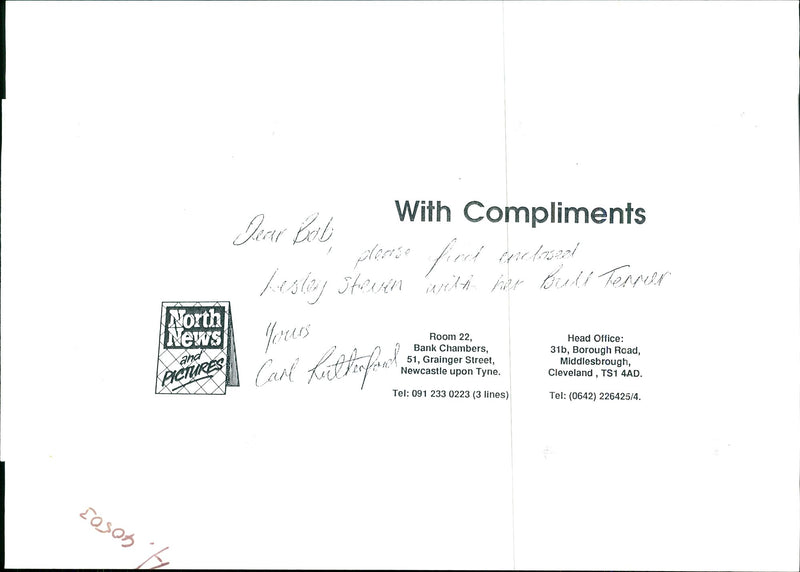 With Compliments
Dear Bob,
please find enclosed
Lesley Steven with her Bull Terrier
Yours
Carl Rutherford
North
News
and
PICTURES
Room 22,
Bank Chambers,
51, Grainger Street,
Newcastle upon Tyne.
Tel: 091 233 0223 (3 lines)
Head Office:
31b, Borough Road,
Middlesbrough,
Cleveland , TS1 4AD.
Tel: (0642) 226425/4.